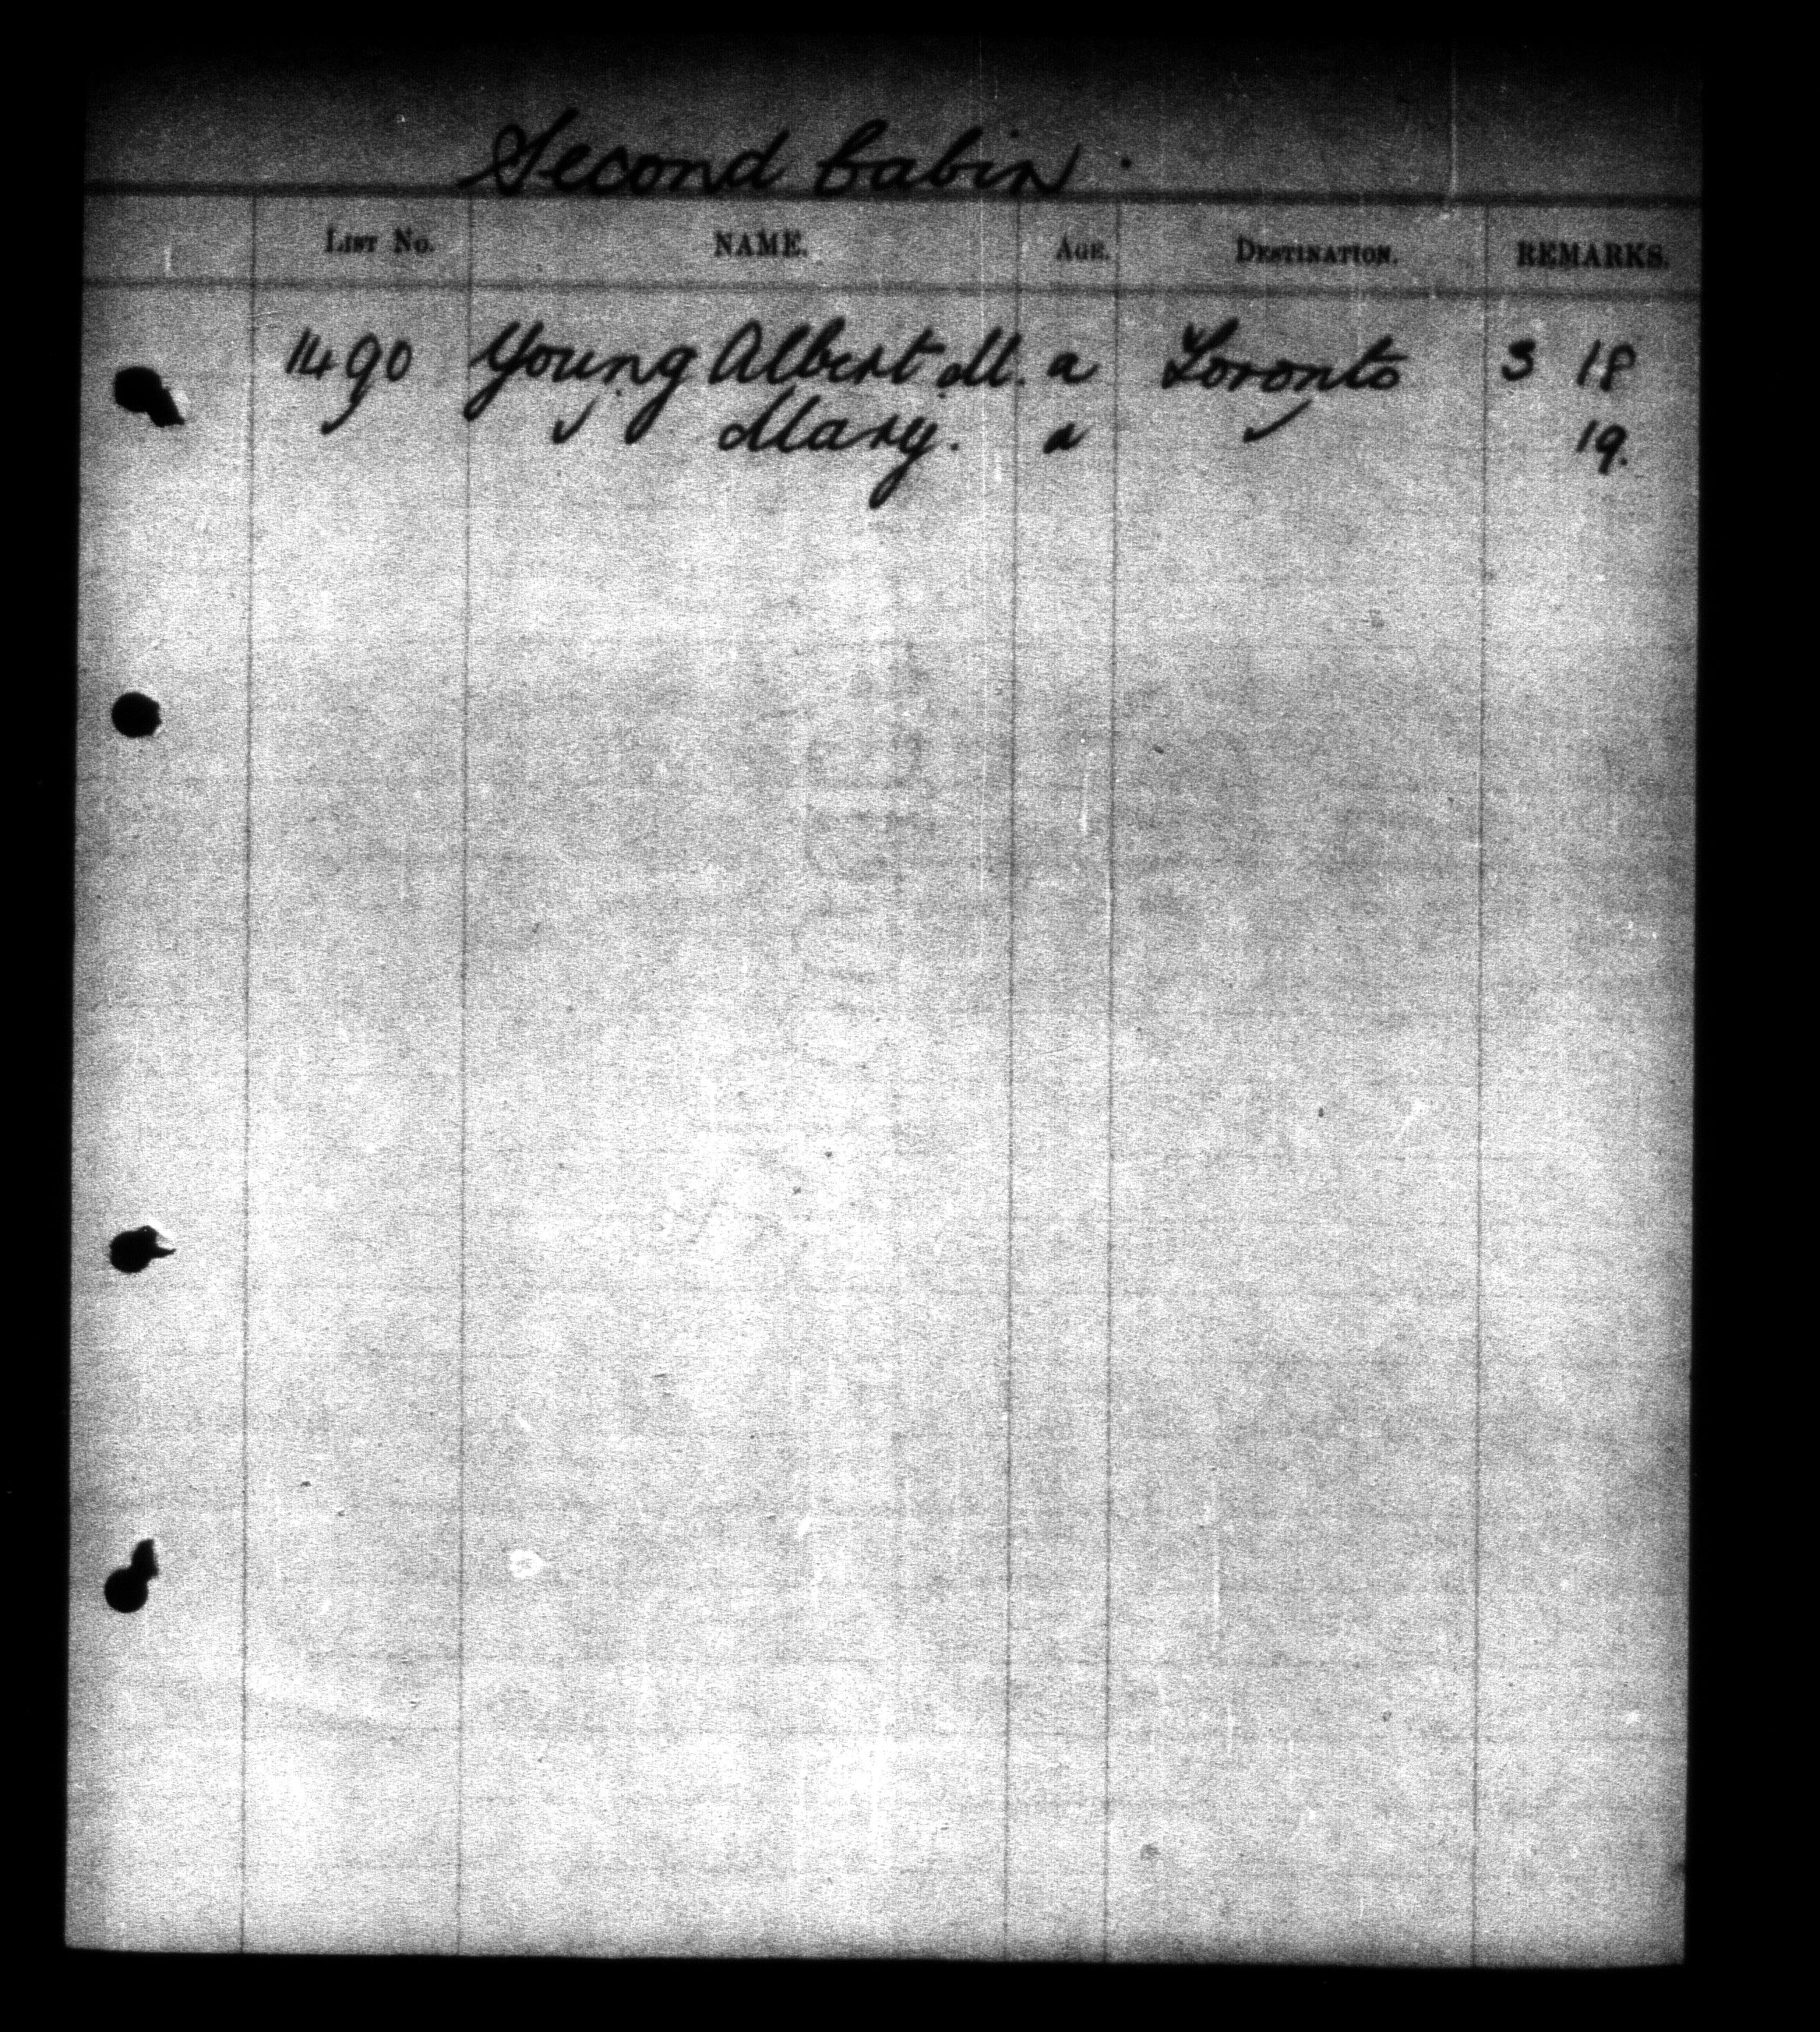 Second Cabin.
LIST NO. NAME. AGE. DESTINATION. REMARKS.
1490 Young Albert M. a Toronto 3 18
✓ ✓ Mary. a ✓ 19.